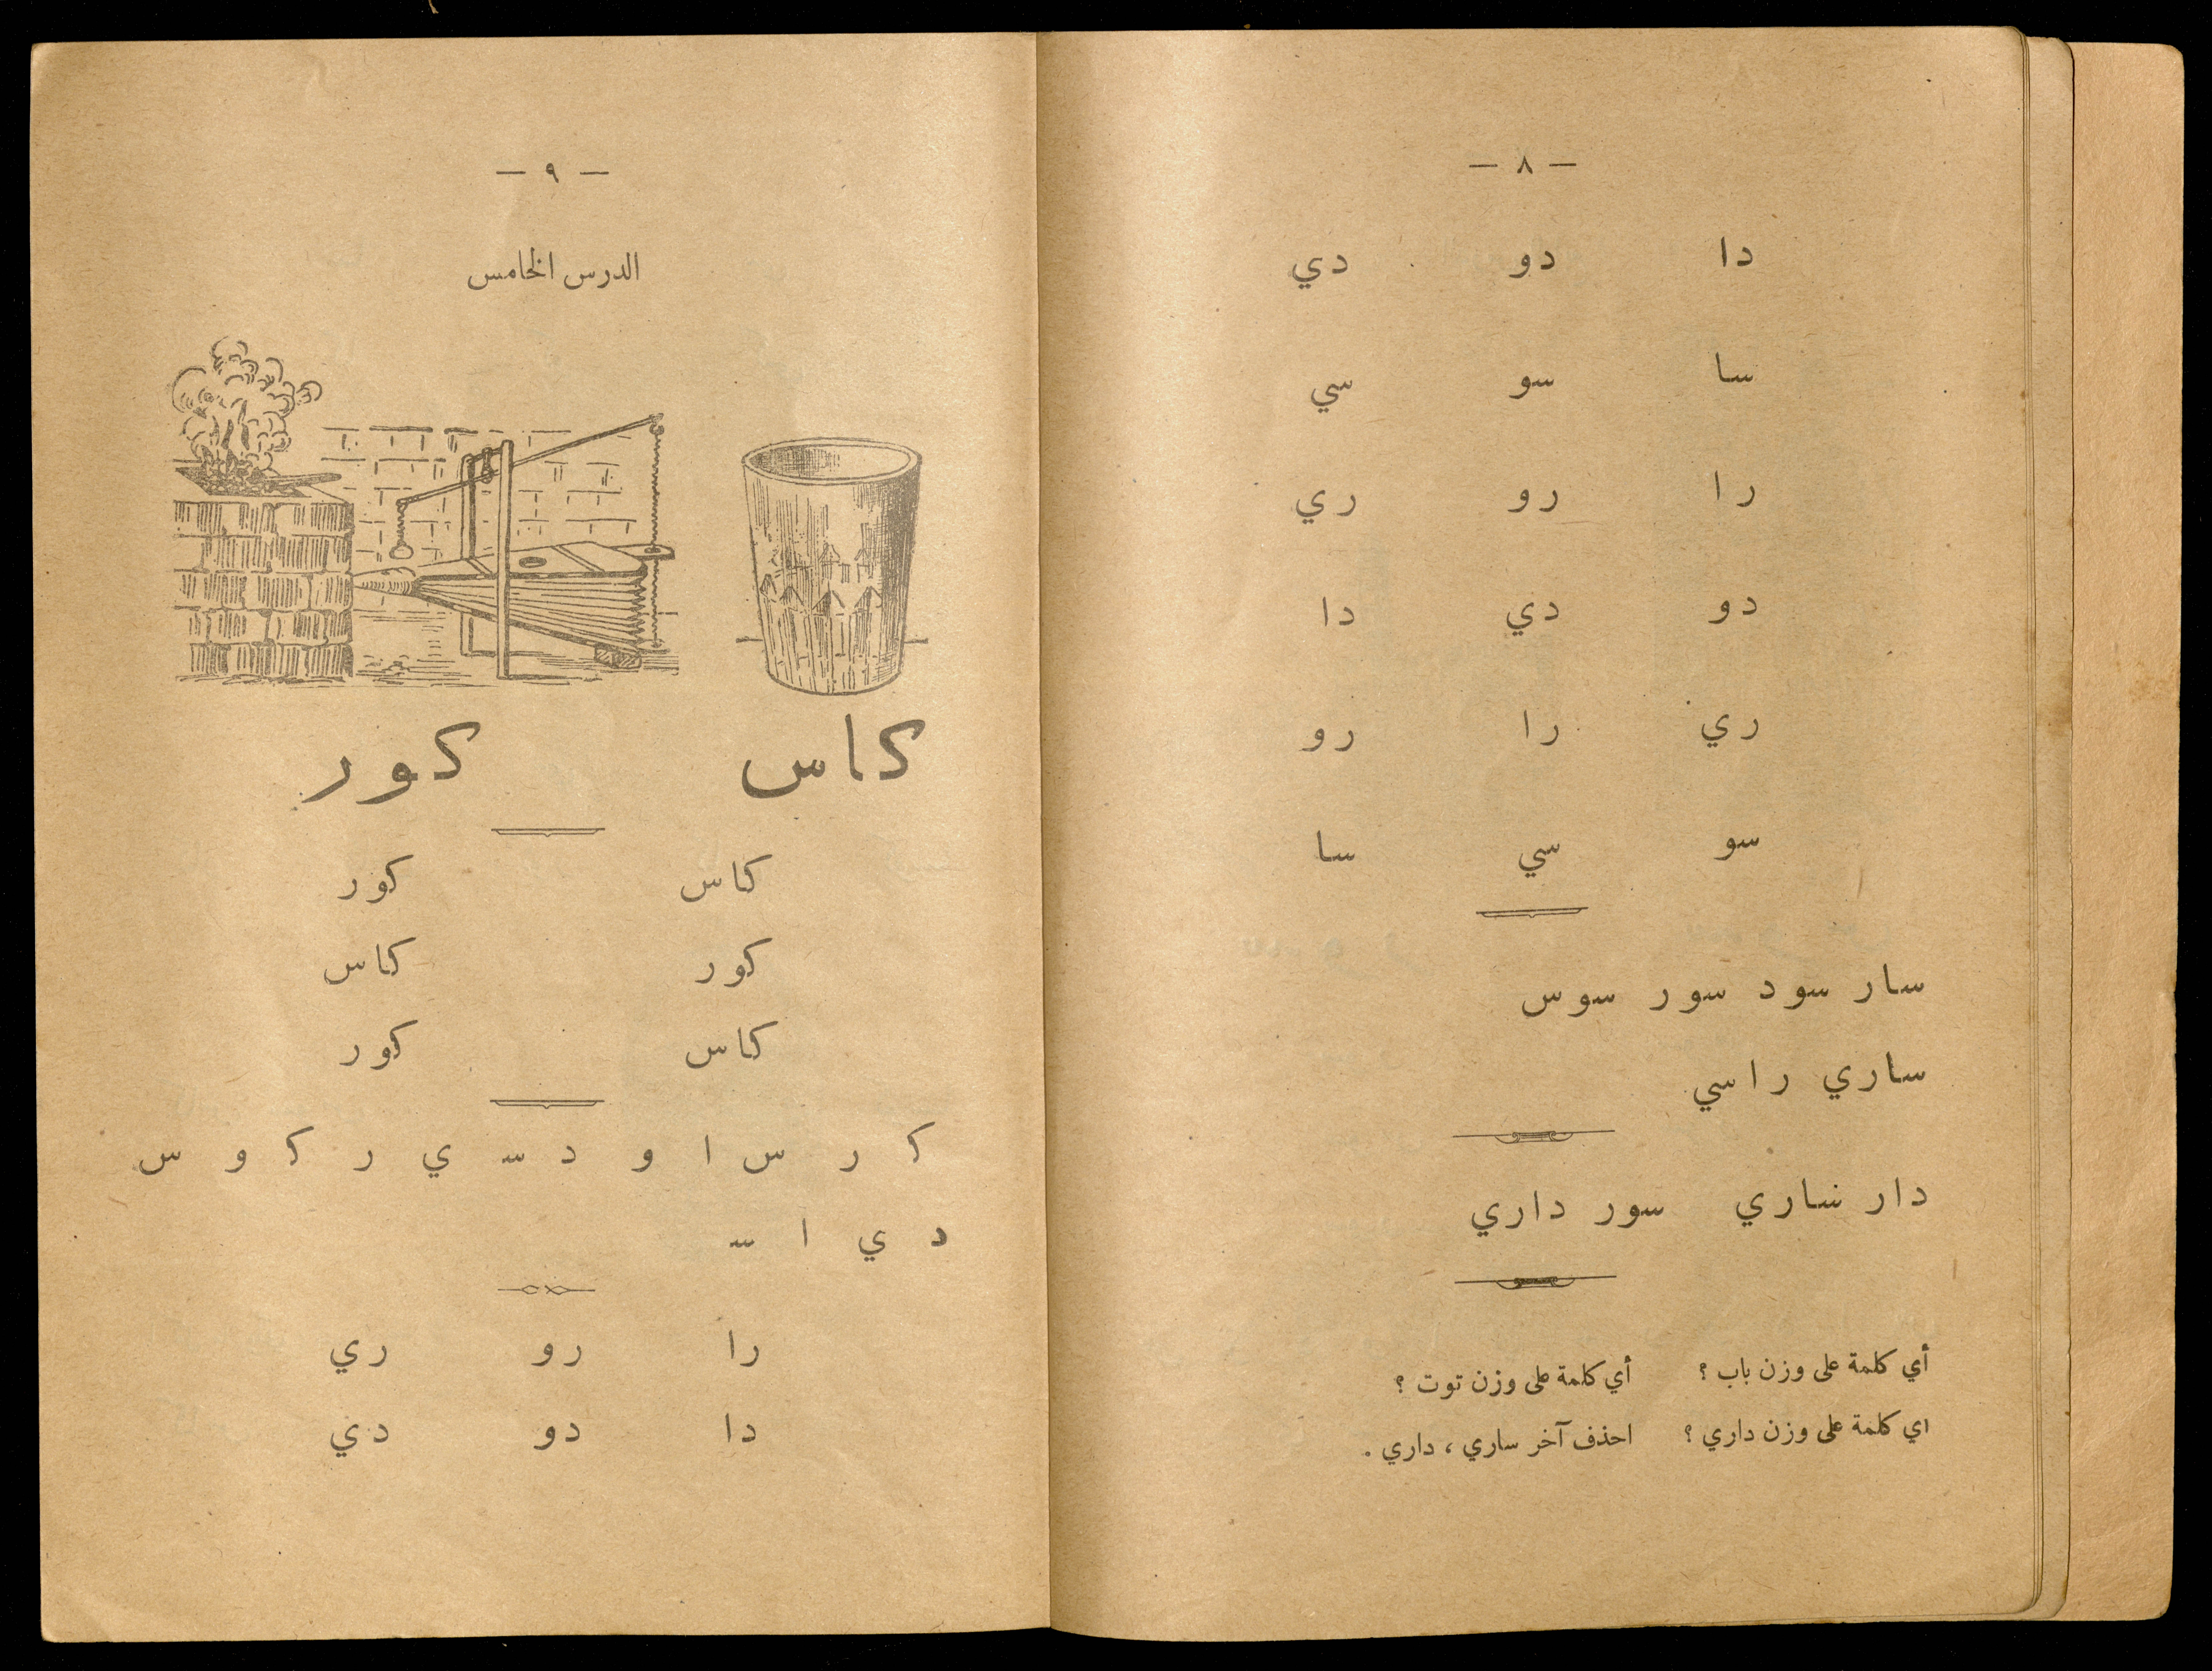 — ٨ —
دا دو دي
سا سو سي
را رو ري
دو دي دا
ري را رو
سو سي سا
سار سود سور سوس
ساري راسي
دار ساري سور داري
أي كلمة على وزن باب ؟ أي كلمة على وزن توت ؟
اي كلمة على وزن داري ؟ احذف آخر ساري ، داري .
— ٩ —
الدرس الخامس
كاس كور
كاس كور
كور كاس
كاس كور
كـ ر س ا و د سـ ي ر كـ و س
د ي ا سـ
را رو ري
دا دو دي